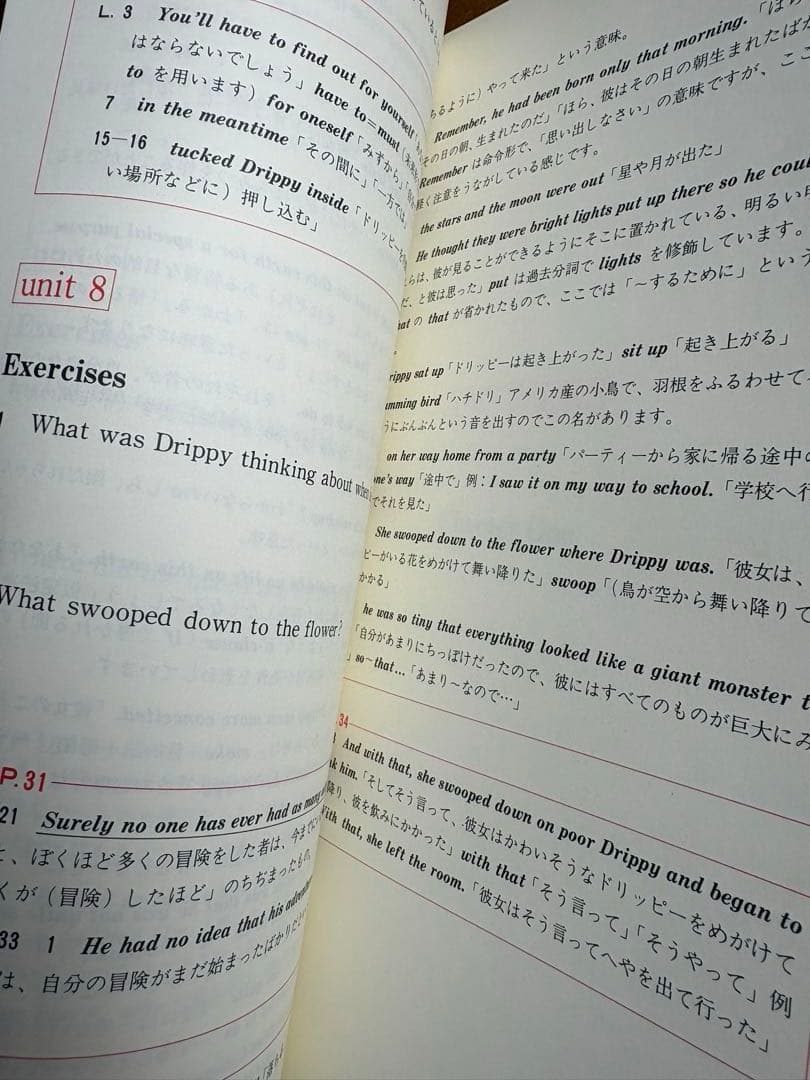 L. 3 You'll have to find out for yourself
はならないでしょう」have to=must
to を用います) for oneself「みずから」
7 in the meantime「その間に」「一方では」
15—16 tucked Drippy inside「ドリッピーを
い場所などに) 押し込む」
unit 8
Exercises
What was Drippy thinking about when
What swooped down to the flower?
P.31
21 Surely no one has ever had as many
と、ぼくほど多くの冒険をした者は、今までに
くが (冒険) したほど」のちぢまったもの。
33 1 He had no idea that his adventures
は、自分の冒険がまだ始まったばかりだと
ちるように) やって来た」という意味。
Remember, he had been born only that morning.「ほら
その日の朝、生まれたのだ」「ほら、彼はその日の朝生まれたばか
Remember は命令形で、「思い出しなさい」の意味ですが、ここ
軽く注意をうながしている感じです。
the stars and the moon were out「星や月が出た」
He thought they were bright lights put up there so he could
らは、彼が見ることができるようにそこに置かれている、明るい
だ、と彼は思った」put は過去分詞で lights を修飾しています。
that の that が省かれたもので、ここでは「~するために」という
rippy sat up「ドリッピーは起き上がった」sit up「起き上がる」
umming bird「ハチドリ」アメリカ産の小鳥で、羽根をふるわせて
うにぶんぶんという音を出すのでこの名があります。
on her way home from a party「パーティーから家に帰る途中
one's way「途中で」例：I saw it on my way to school.「学校へ行
でそれを見た」
She swooped down to the flower where Drippy was.「彼女は、
ピーがいる花をめがけて舞い降りた」swoop「(鳥が空から舞い降りて
かかる」
he was so tiny that everything looked like a giant monster t
「自分があまりにちっぽけだったので、彼にはすべてのものが巨大にみ
」so~that...「あまり~なので…」
34
And with that, she swooped down on poor Drippy and began to
him.「そしてそう言って、彼女はかわいそうなドリッピーをめがけて
降り、彼を飲みにかかった」with that「そう言って」「そうやって」例
With that, she left the room.「彼女はそう言ってへやを出て行った」